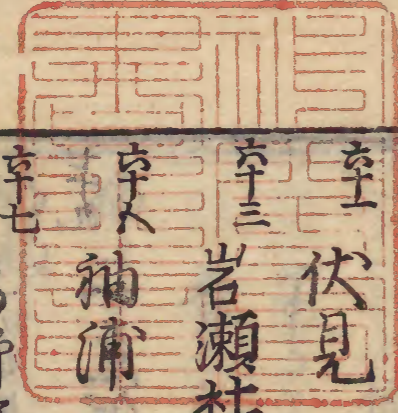 六十一 伏見
六十三 岩瀬杜
六十八 袖浦
六十七